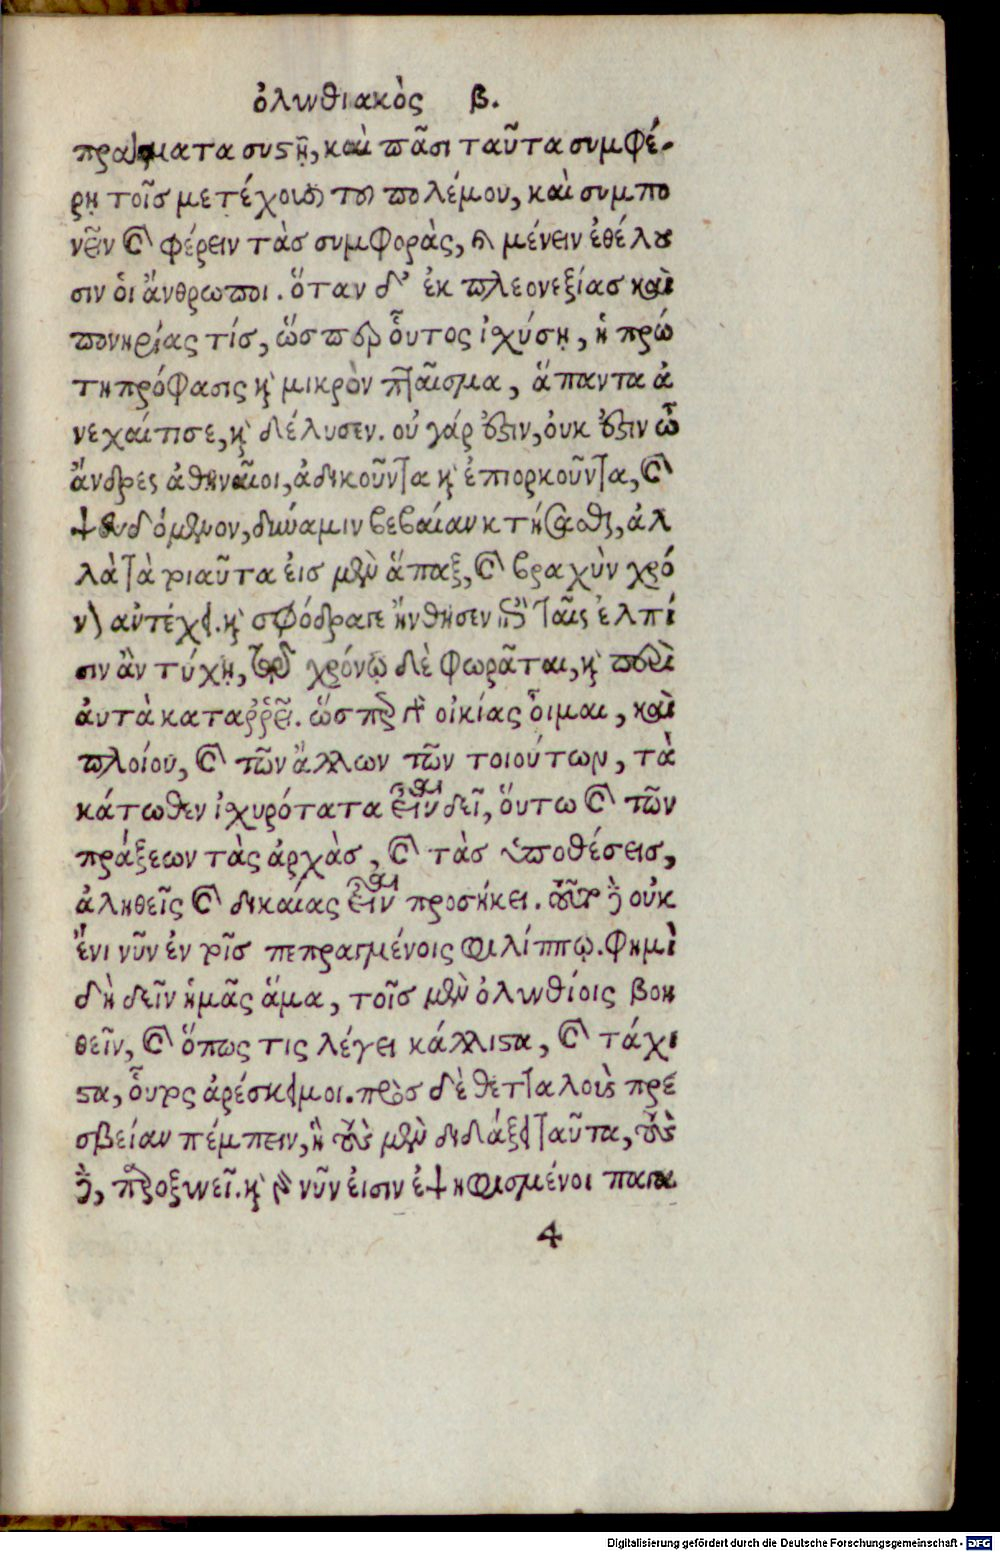 ὀλυνθιακὸς β.
πράγματα συστῇ, καὶ πᾶσι ταῦτα συμφέ-
ρῃ τοῖς μετέχουσι τοῦ πολέμου, καὶ συμπο
νεῖν καὶ φέρειν τὰς συμφορὰς, καὶ μένειν ἐθέλου
σιν ὁι ἄνθρωποι. ὅταν δ' ἐκ πλεονεξίας καὶ
πονηρίας τίς, ὥσπερ οὗτος ἰχύσῃ, ἡ πρώ
τη πρόφασις καὶ μικρὸν πταῖσμα, ἅπαντα ἀ
νεχαίτισε, καὶ διέλυσεν. οὐ γάρ ἔστιν, οὐκ ἔστιν ὦ
ἄνδρες ἀθηναῖοι, ἀδικοῦντα καὶ ἐπιορκοῦντα, καὶ
ψευδόμενον, δύναμιν βεβαίαν κτήσασθαι, ἀλ
λὰ τὰ τοιαῦτα εἰς μὲν ἅπαξ, καὶ βραχὺν χρό
νον ἀντέχει. καὶ σφόδρα γε ἤνθησεν ἐπὶ ταῖς ἐλπί
σιν ἂν τύχῃ, τῷ χρόνῳ δὲ φωρᾶται, καὶ περὶ
ἀυτὰ καταῤῥεῖ. ὥσπερ γὰρ οἰκίας οἶμαι, καὶ
πλοίου, καὶ τῶν ἄλλων τῶν τοιούτων, τὰ
κάτωθεν ἰχυρότατα εἶναι δεῖ, ὅυτω καὶ τῶν
πράξεων τὰς ἀρχὰς, καὶ τὰς ὑποθέσεις,
ἀληθεῖς καὶ δικαίας εἶναι προσήκει. τοῦτο δὲ οὐκ
ἔνι νῦν ἐν τοῖς πεπραγμένοις φιλίππῳ. φημὶ
δὴ δεῖν ἡμᾶς ἅμα, τοῖς μὲν ὀλυνθίοις βοη
θεῖν, καὶ ὅπως τις λέγει κάλλιστα, καὶ τάχι
στα, οὕτως ἀρέσκει μοι. πρὸς δὲ θετταλοὺς πρε
σβείαν πέμπειν, ἣ τοὺς μὲν διδάξει ταῦτα, τοὺς
δὲ, παροξυνεῖ. καὶ γὰρ νῦν ἐισιν ἐψηφισμένοι παγα
4
Digitalisierung gefördert durch die Deutsche Forschungsgemeinschaft - DFG